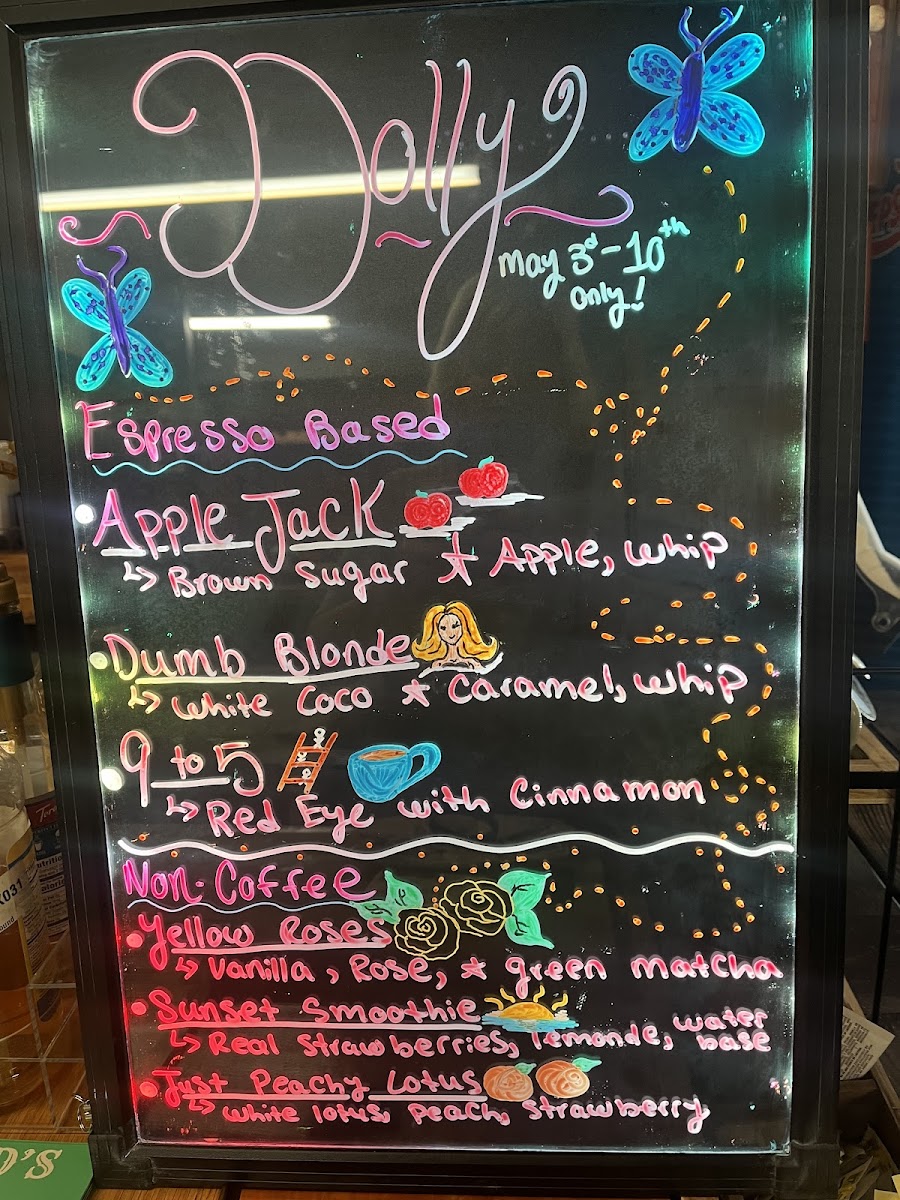 Dolly
May 3rd - 10th
only!
Espresso Based
Apple Jack
↳ Brown Sugar & Apple, whip
Dumb Blonde
↳ White Coco & Caramel, whip
9 to 5
↳ Red Eye with Cinnamon
Non-Coffee
Yellow Roses
↳ Vanilla, Rose, & green matcha
Sunset Smoothie
↳ Real strawberries, lemonde, water base
Just Peachy Lotus
↳ White lotus, peach, strawberry